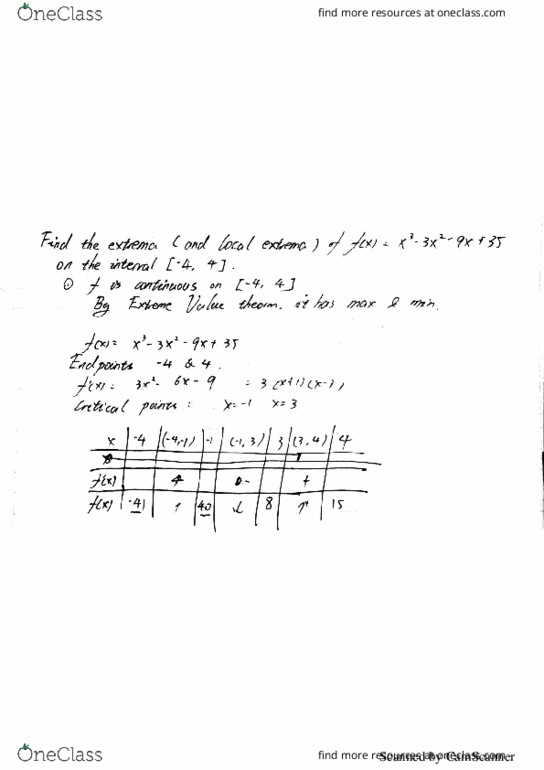 OneClass
find more resources at oneclass.com
Find the extrema (and local extrema) of f(x) = x³-3x²-9x+35
on the interval [-4, 4].
① f is continuous on [-4, 4]
By Extreme Value theorem. it has max & min.
f(x) = x³-3x²-9x+35
Endpoints -4 & 4.
f'(x) = 3x²-6x-9 = 3(x+1)(x-3)
Critical points: x=-1 x=3
x -4 (-4,-1) -1 (-1, 3) 3 (3, 4) 4
f'(x) + - +
f(x) -41 ↑ 40 ↓ 8 ↑ 15
OneClass
find more resources at oneclass.com
Scanned by CamScanner